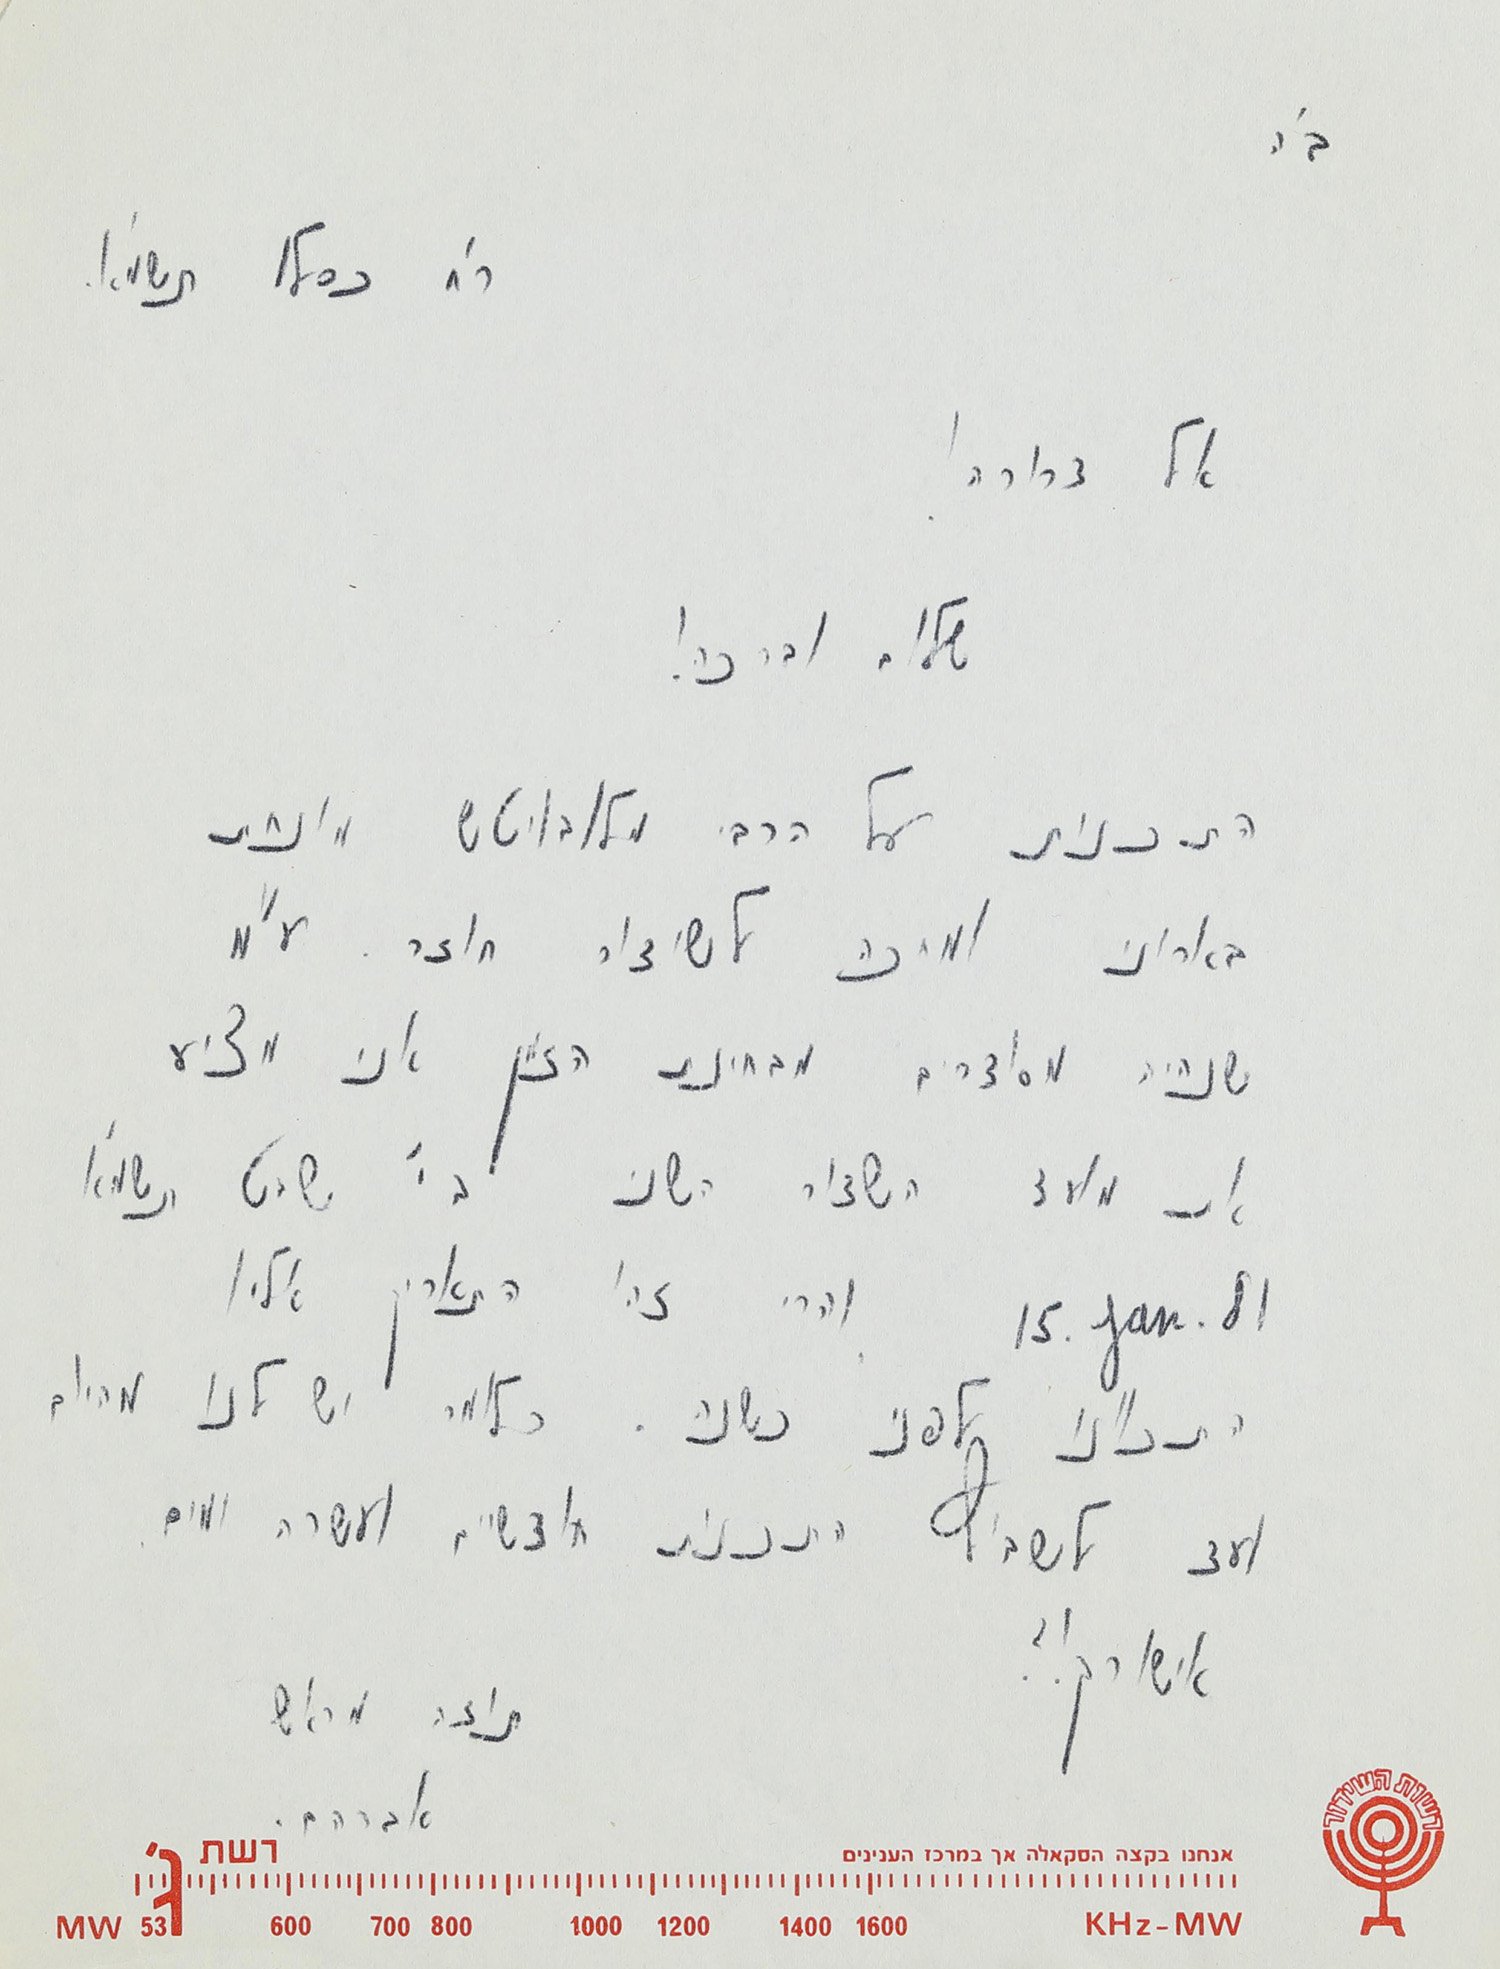 ב"ה
ר"ח כסלו תשמ"א.
אל דרורה!
שלום וברכה!
התכנית על הרבי מלובויטש מונחת
בארוני ומחכה לשידור חוזר. ע"מ
שנהיה מסודרים מבחינת הזמן אני מציע
את מועד השדור השני ב י' שבט תשמ"א
15. Jan. 81 והרי זהו התאריך אליו
התכוונו לפני כשנה. כלומר יש לנו מהיום
ועד לשבוץ התכנית חודשיים ועשרה ימים.
אישורך!?
תודה מראש
אברהם.
רשות השידור
רשת ג'
אנחנו בקצה הסקאלה אך במרכז הענינים
MW 53 600 700 800 1000 1200 1400 1600 KHz-MW